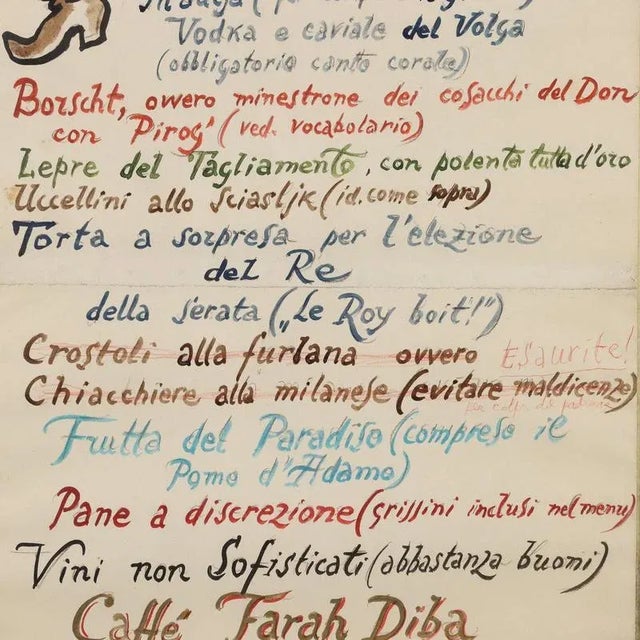 Vodka e caviale del Volga
(obbligatorio canto corale)
Borscht, ovvero minestrone dei cosacchi del Don
con "Pirog" (ved. vocabolario)
Lepre del Tagliamento, con polenta tutta d'oro
Uccellini allo sciasljk (id. come sopra)
Torta a sorpresa per l'elezione
del Re
della serata („Le Roy boit!")
Crostoli alla furlana ovvero Esaurite!
Chiacchiere alla milanese (evitare maldicenze)
per colpa di
Frutta del Paradiso (compreso il
Pomo d'Adamo)
Pane a discrezione (grissini inclusi nel menu)
Vini non Sofisticati (abbastanza buoni)
Caffé Farah Diba